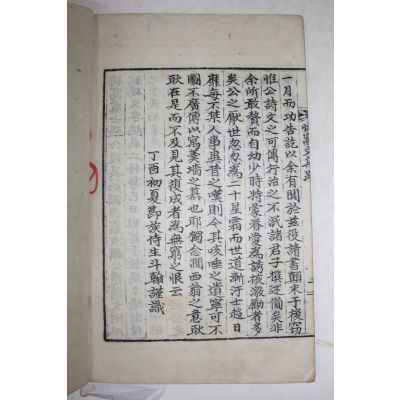 一月而功告訖以余有聞於玆役請書顚末于後窃
惟公詩文之可傳行治之不泯諸君子撰述備矣非
余所敢贅而自幼少時特蒙眷愛爲誘掖激勵者多
矣公之厭世忽忽爲二十星霜而世道漸汙士趍日
靡每不禁人事與昔之嘆則今其咳唾之遺寧可不
圖不廣傳以寓羹墻之慕也耶獨念聞西翁之意耿
耿在是而不及見其須成者爲無窮之恨云
丁酉初夏節族侍生斗翰謹識